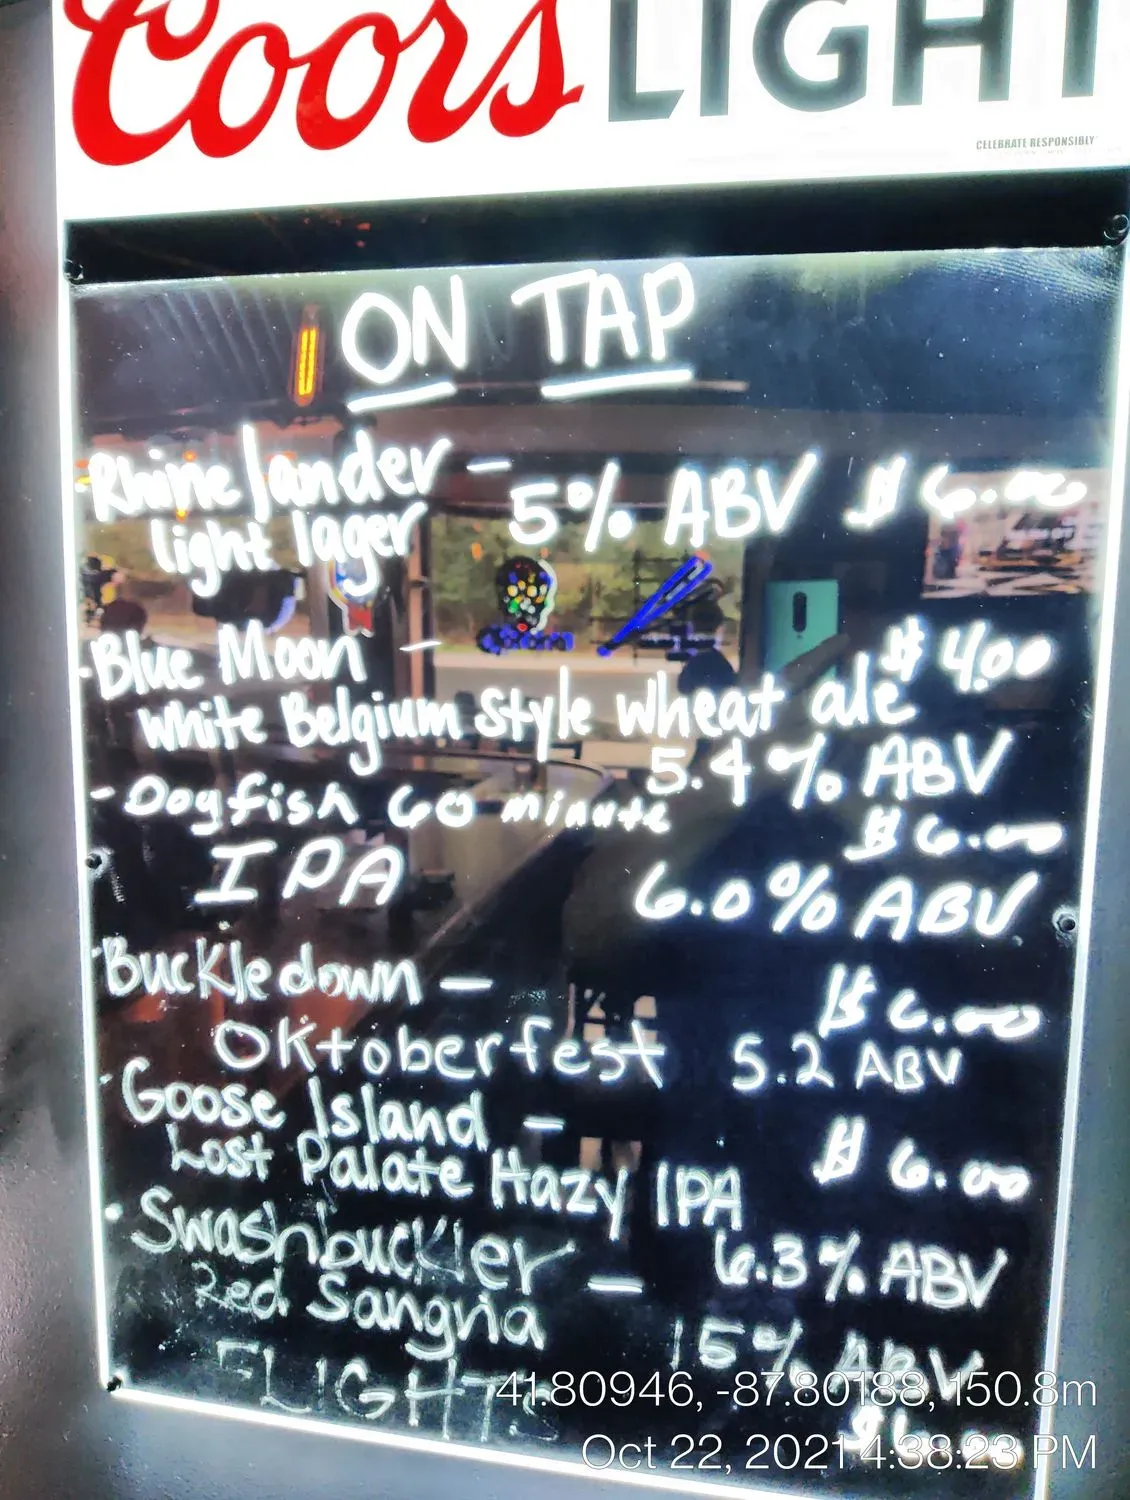 Coors LIGHT
CELEBRATE RESPONSIBLY
ON TAP
Rhinelander — 5% ABV $6.00
light lager
Blue Moon — $4.00
White Belgium style wheat ale
5.4% ABV
- Dogfish 60 minute $6.00
IPA 6.0% ABV
Buckledown — $6.00
OKtoberfest 5.2 ABV
Goose Island — $6.00
Lost Palate Hazy IPA
6.3% ABV
Swashbuckler —
Red Sangria
15% ABV
FLIGHTS $6.00
41.80946, -87.80188, 150.8m
Oct 22, 2021 4:38:23 PM